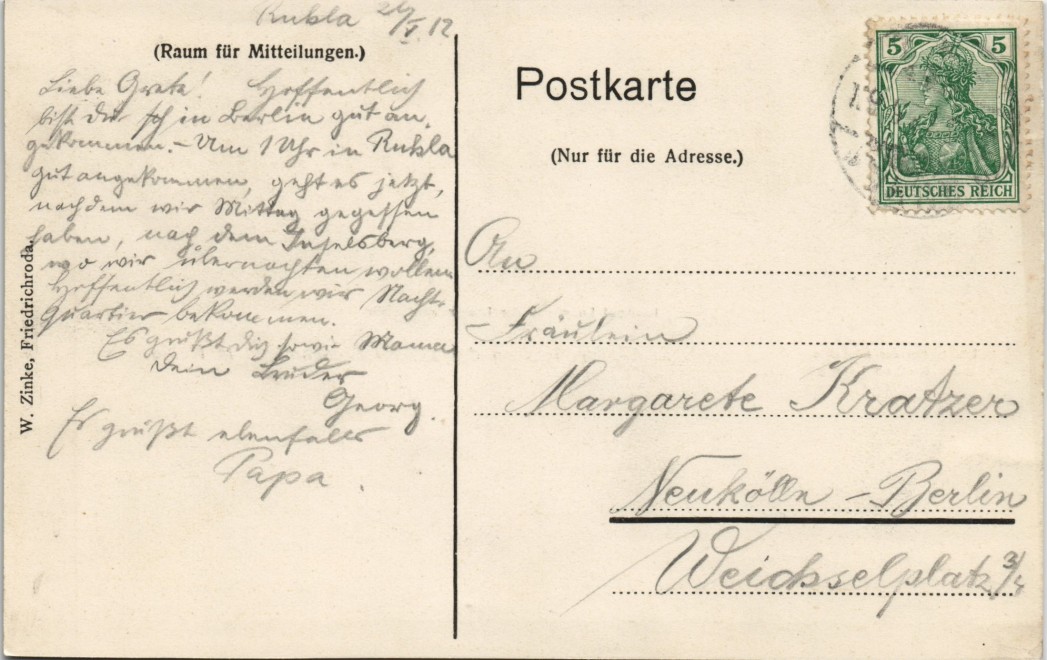 Ruhla 26/V. 12
(Raum für Mitteilungen.)
Liebe Grete! Hoffentlich
bist du in Berlin gut an-
gekommen. - Um 1 Uhr in Ruhla
gut angekommen, geht es jetzt,
nachdem wir Mittag gegessen
haben, nach dem Inselsberg,
wo wir übernachten wollen.
Hoffentlich werden wir Nacht-
Quartier bekommen.
Es grüßt dich sowie Mama
dein Bruder
Georg.
Es grüßt ebenfalls
Papa.
W. Zinke, Friedrichroda.
Postkarte
(Nur für die Adresse.)
5 5
DEUTSCHES REICH
An
Fräulein
Margarete Kratzer
Neukölln - Berlin
Weichselplatz 3/4